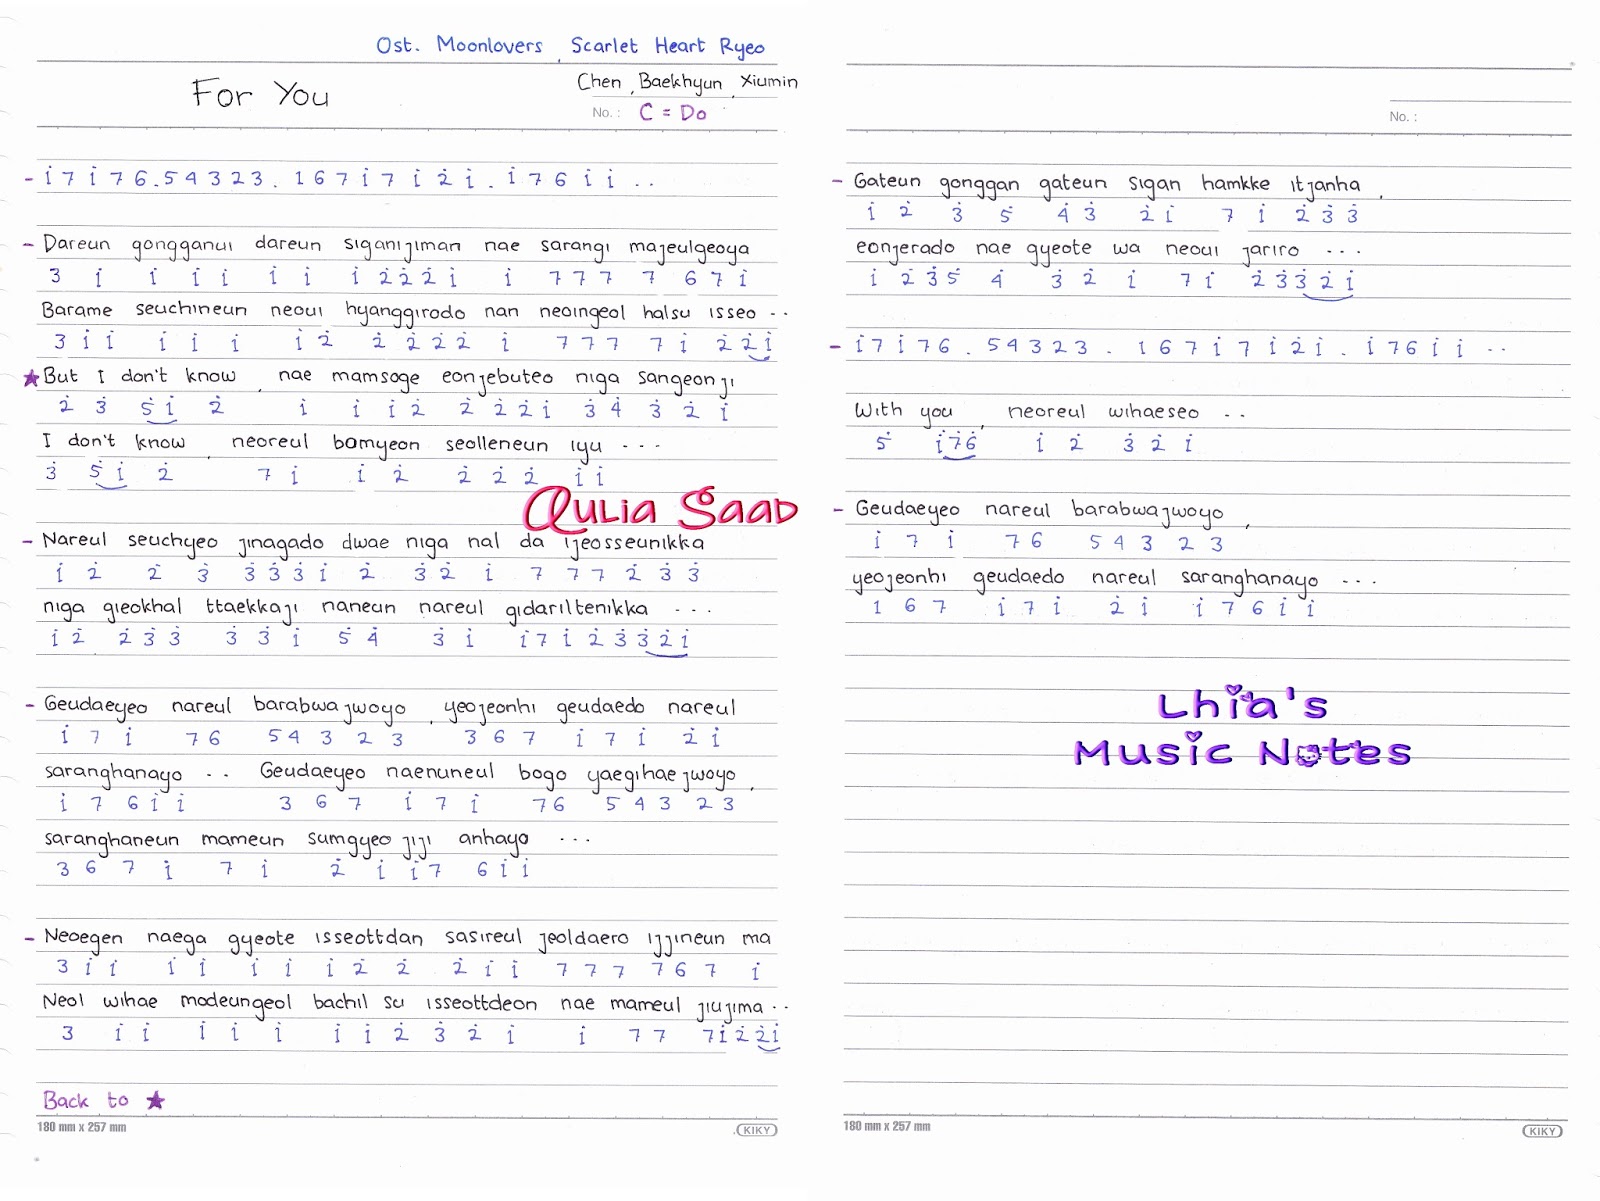 Ost. Moonlovers , Scarlet Heart Ryeo
For You
Chen , Baekhyun , Xiumin
No. : C = Do
- i̇ 7 i̇ 7 6 . 5 4 3 2 3 . 1 6 7 i̇ 7 i̇ 2̇ i̇ . i̇ 7 6 i̇ i̇ . .
- Dareun gongganui dareun siganijiman nae sarangi majeulgeoya
3 i̇ i̇ i̇ i̇ i̇ i̇ i̇ 2̇ 2̇ 2̇ i̇ i̇ 7 7 7 7 6 7 i̇
Barame seuchineun neoui hyanggirodo nan neoingeol halsu isseo - -
3 i̇ i̇ i̇ i̇ i̇ i̇ 2̇ 2̇ 2̇ 2̇ 2̇ i̇ 7 7 7 7 i̇ 2̇ 2̇ i̇
★ But I don't know , nae mamsoge eonjebuteo niga sangeonji
2̇ 3̇ 5̇ i̇ 2̇ i̇ i̇ i̇ 2̇ 2̇ 2̇ 2̇ i̇ 3̇ 4̇ 3̇ 2̇ i̇
I don't know , neoreul bomyeon seolleneun iyu - - -
3̇ 5̇ i̇ 2̇ 7 i̇ i̇ 2̇ 2̇ 2̇ 2̇ i̇ i̇
Qulia Saad
- Nareul seuchyeo jinagado dwae niga nal da ijeosseunikka
i̇ 2̇ 2̇ 3̇ 3̇ 3̇ 3̇ i̇ 2̇ 3̇ 2̇ i̇ 7 7 7 2̇ 3̇ 3̇
niga gieokhal ttaekkaji naneun nareul gidariltenikka - - -
i̇ 2̇ 2̇ 3̇ 3̇ 3̇ 3̇ i̇ 5̇ 4̇ 3̇ i̇ i̇ 7 i̇ 2̇ 3̇ 3̇ 2̇ i̇
- Geudaeyeo nareul barabwajwoyo , yeojeonhi geudaedo nareul
i̇ 7 i̇ 7 6 5 4 3 2 3 3 6 7 i̇ 7 i̇ 2̇ i̇
saranghanayo - - Geudaeyeo naenuneul bogo yaegihaejwoyo ,
i̇ 7 6 i̇ i̇ 3 6 7 i̇ 7 i̇ 7 6 5 4 3 2 3
saranghaneun mameun sumgyeo jiji anhayo - - -
3 6 7 i̇ 7 i̇ 2̇ i̇ i̇ 7 6 i̇ i̇
- Neoegen naega gyeote isseottdan sasireul jeoldaero ijjineun ma
3 i̇ i̇ i̇ i̇ i̇ i̇ i̇ 2̇ 2̇ 2̇ i̇ i̇ 7 7 7 7 6 7 i̇
Neol wihae modeungeol bachil su isseottdeon nae mameul jiujima - -
3 i̇ i̇ i̇ i̇ i̇ i̇ i̇ 2̇ 3̇ 2̇ i̇ i̇ 7 7 7 i̇ 2̇ 2̇ i̇
Back to ★
180 mm x 257 mm
KIKY
No. :
- Gateun gonggan gateun sigan hamkke itjanha ,
i̇ 2̇ 3̇ 5̇ 4̇ 3̇ 2̇ i̇ 7 i̇ 2̇ 3̇ 3̇
eonjerado nae gyeote wa neoui jariro - - -
i̇ 2̇ 3̇ 5̇ 4̇ 3̇ 2̇ i̇ 7 i̇ 2̇ 3̇ 3̇ 2̇ i̇
- i̇ 7 i̇ 7 6 . 5 4 3 2 3 . 1 6 7 i̇ 7 i̇ 2̇ i̇ . i̇ 7 6 i̇ i̇ - -
With you , neoreul wihaeseo - -
5̇ i̇ 7 6 i̇ 2̇ 3̇ 2̇ i̇
- Geudaeyeo nareul barabwajwoyo ,
i̇ 7 i̇ 7 6 5 4 3 2 3
yeojeonhi geudaedo nareul saranghanayo - - -
1 6 7 i̇ 7 i̇ 2̇ i̇ i̇ 7 6 i̇ i̇
Lhia's
Music Notes
180 mm x 257 mm
KIKY